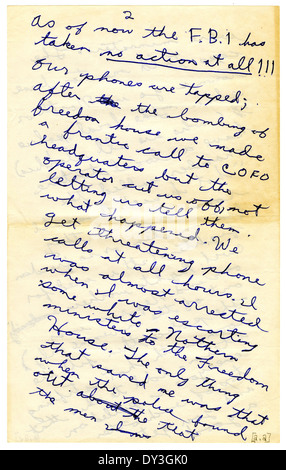 2
as of now the F.B.I has
taken no action at all!!!
Our phones are tapped;
after the the bombing of
freedom house we made
a frantic call to COFO
headquaters but the
operator cut us off, not
letting us tell them
what happened. We
get threatening phone
calls at all hours. I
was almost arrested
when I was escorting
some white Nothern
ministers to the Freedom
House. The only thing
that saved me was that
when the police found
out about that
the men
alamy
Image ID: DY3GK0
www.alamy.com